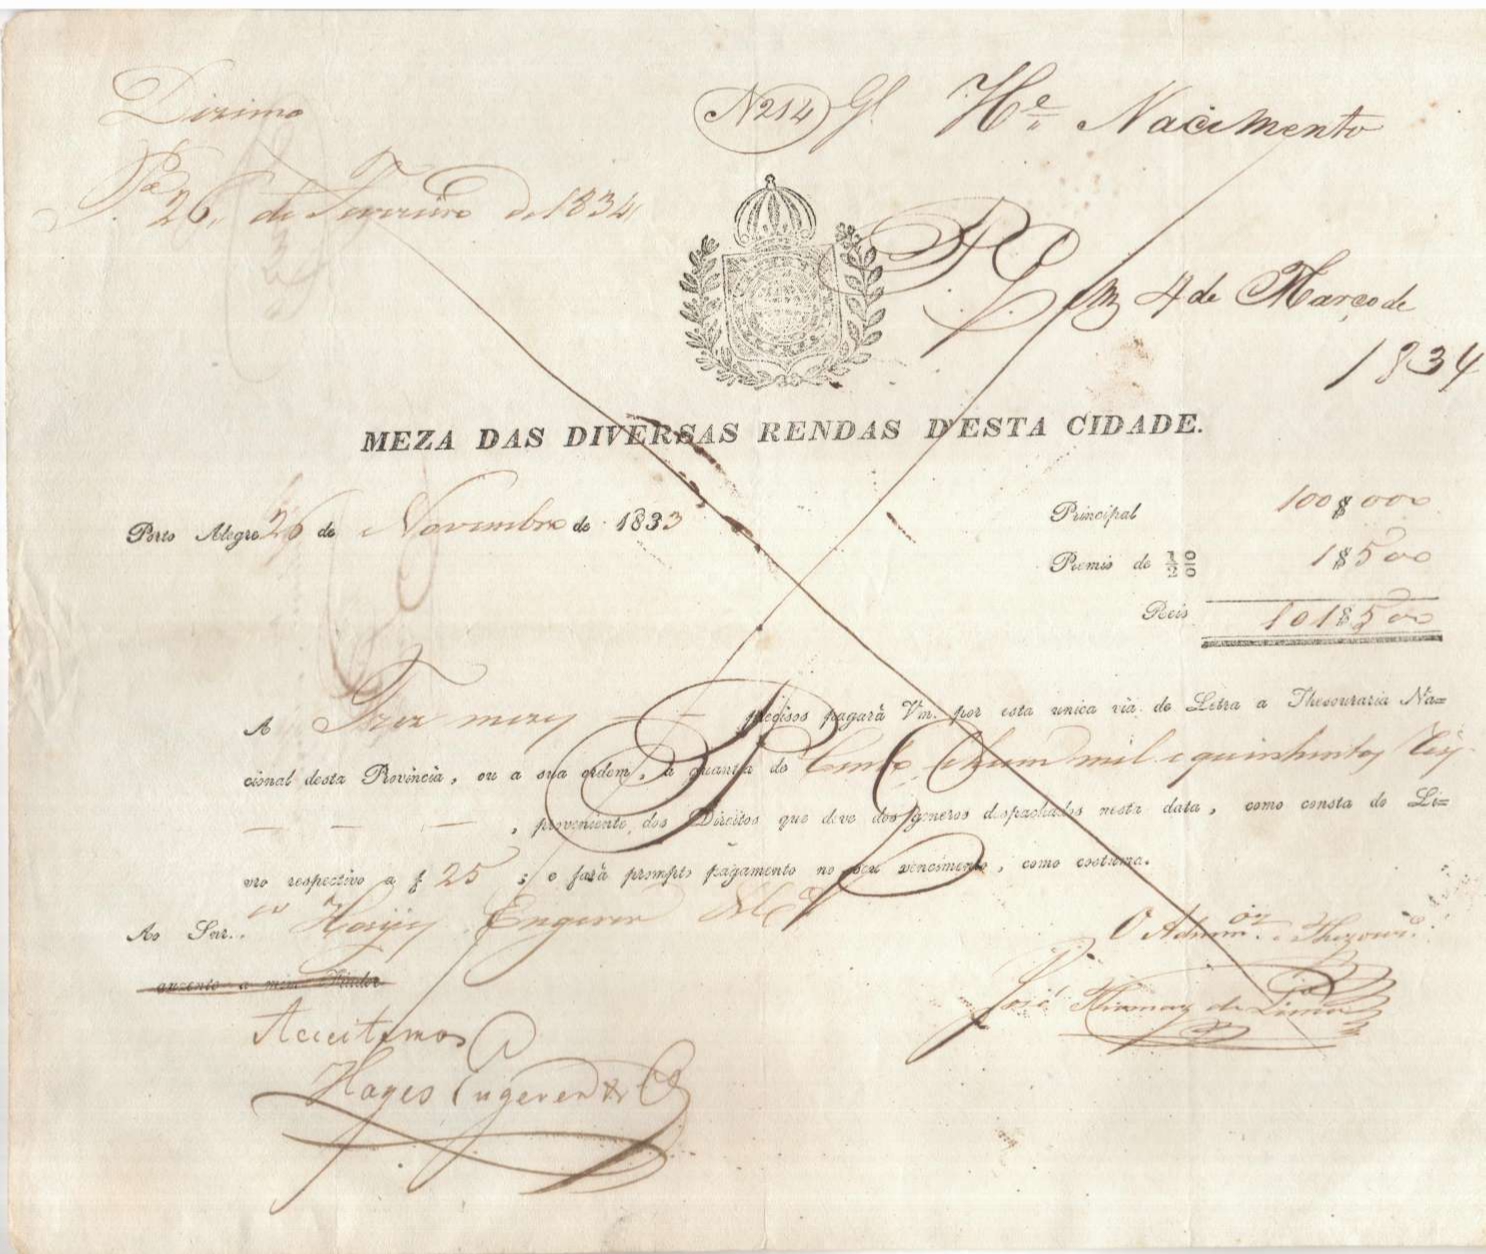 Dizimo
N 214 Gl. He Nacimento
Pa 26, de Fevereiro de 1834
Em 4 de Março de
1834
MEZA DAS DIVERSAS RENDAS D'ESTA CIDADE.
Porto Alegre 26 de Novembro de 1833
Principal 100$000
Premio de 1/2 0/0 1$500
Reis 101$500
A Trez mezes precisos pagará Vm. por esta unica via de Letra a Thesouraria Na=
cional desta Provincia, ou a sua ordem, a quantia de Cento e hum mil e quinhentos reis
, proveniente dos Direitos que deve dos generos despachados nesta data, como consta do Li=
vro respectivo a f 25 ; e fará prompto pagamento no seu vencimento, como costuma.
Ao Snr. Hayes Engerer & Ca
O Admm.or e Thezour.o
auzente a mim Fiador
José de Lima
Acceitamos
Hayes Engerer & C